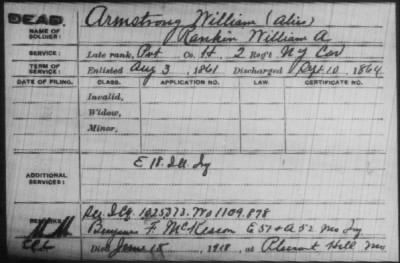 DEAD.
Armstrong William (alias)
NAME OF SOLDIER:
Rankin William A
SERVICE:
Late rank, Pvt Co. H, 2 Reg't N Y Cav
TERM OF SERVICE:
Enlisted Aug 3, 1861 Discharged Sept. 10, 1864
DATE OF FILING. CLASS. APPLICATION NO. LAW. CERTIFICATE NO.
Invalid,
Widow,
Minor,
ADDITIONAL SERVICES:
E 18. Ill. Iy
See Ill 1025373. WO 1109.878
REMARKS:
Benjamin F. McKeson E 51 + A 52 Mo Iy
Died June 15, 1918, at Pleasant Hill Mo